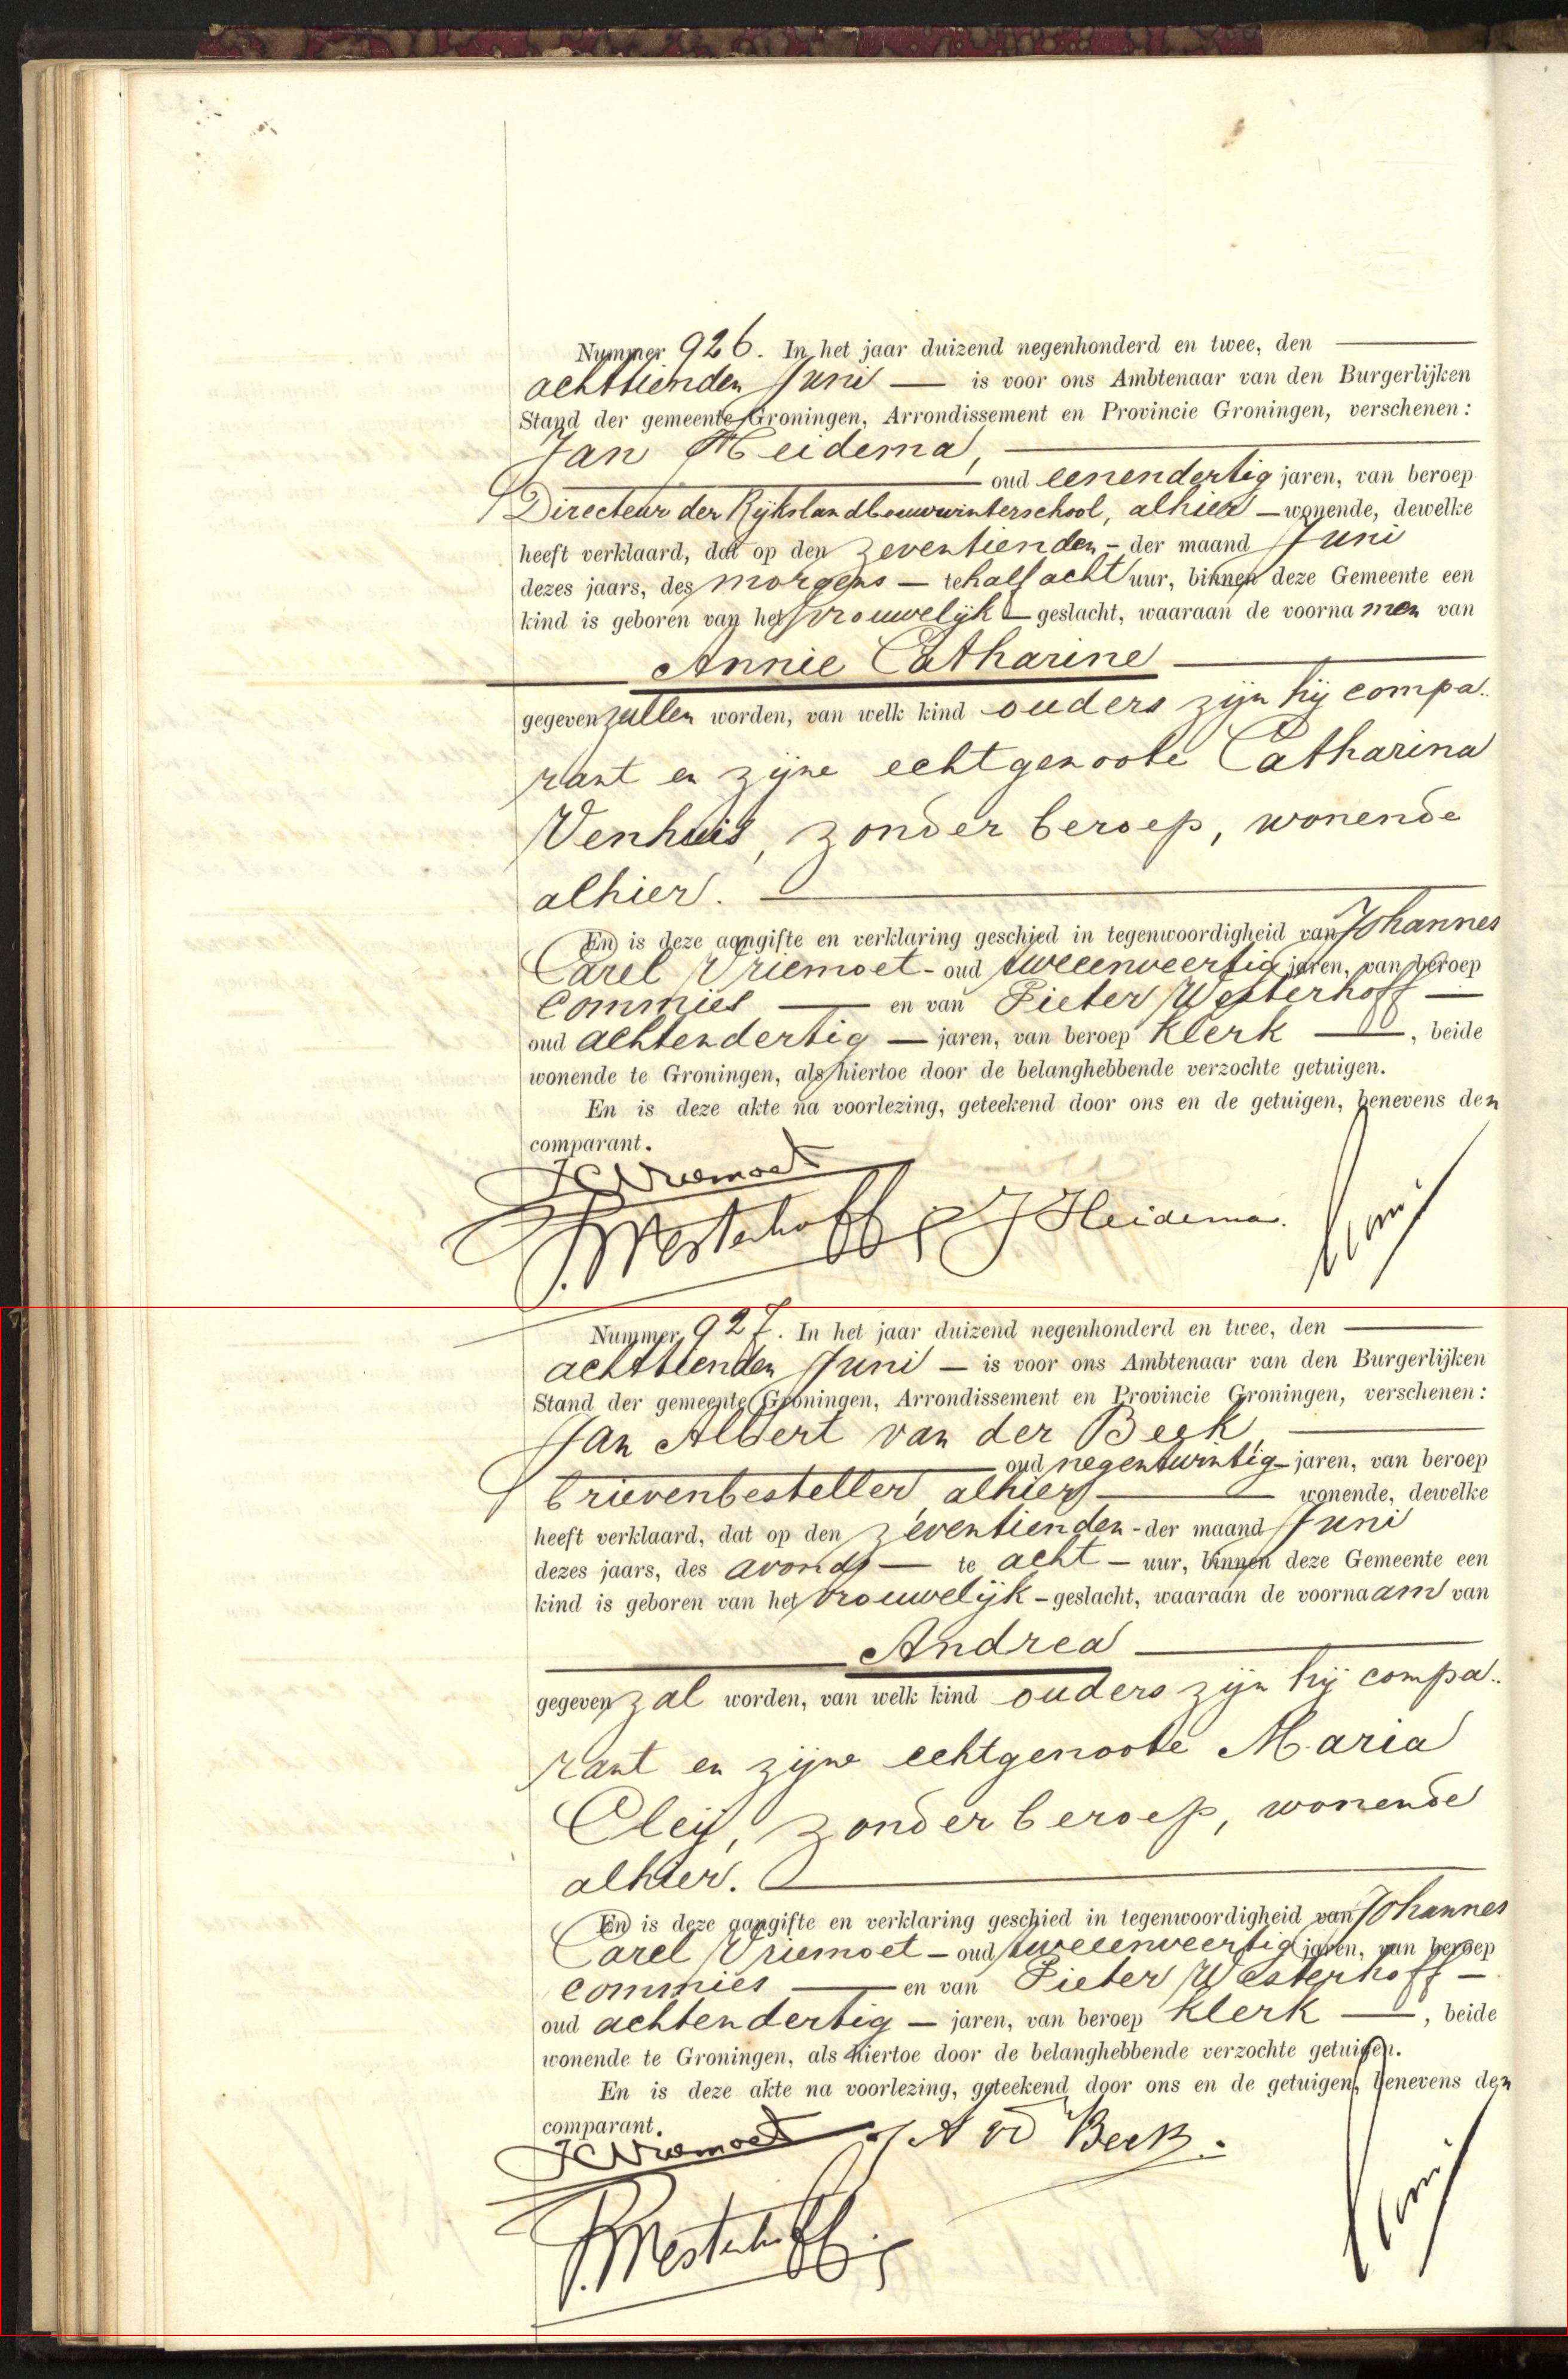 Nummer 926. In het jaar duizend negenhonderd en twee, den
achttienden Juni — is voor ons Ambtenaar van den Burgerlijken
Stand der gemeente Groningen, Arrondissement en Provincie Groningen, verschenen:
Jan Heidema,
oud eenendertig jaren, van beroep
Directeur der Rijkslandbouwwinterschool, alhier — wonende, dewelke
heeft verklaard, dat op den zeventienden - der maand Juni
dezes jaars, des morgens — te half acht uur, binnen deze Gemeente een
kind is geboren van het vrouwelijk — geslacht, waaraan de voornamen van
Annie Catharine
gegeven zullen worden, van welk kind ouders zijn hij compa..
rant en zijne echtgenoote Catharina
Venhuis, zonder beroep, wonende
alhier.
En is deze aangifte en verklaring geschied in tegenwoordigheid van Johannes
Carel Vriemoet - oud tweeenveertig jaren, van beroep
commies — en van Pieter Westerhoff —
oud achtendertig — jaren, van beroep klerk —, beide
wonende te Groningen, als hiertoe door de belanghebbende verzochte getuigen.
En is deze akte na voorlezing, geteekend door ons en de getuigen, benevens den
comparant.
JCVriemoet
P. Westerhoff J Heidema.
Nummer 927. In het jaar duizend negenhonderd en twee, den
achttienden Juni — is voor ons Ambtenaar van den Burgerlijken
Stand der gemeente Groningen, Arrondissement en Provincie Groningen, verschenen:
Jan Albert van der Beek,
oud negentwintig jaren, van beroep
brievenbesteller, alhier — wonende, dewelke
heeft verklaard, dat op den zeventienden - der maand Juni
dezes jaars, des avonds — te acht — uur, binnen deze Gemeente een
kind is geboren van het vrouwelijk - geslacht, waaraan de voornaam van
Andrea
gegeven zal worden, van welk kind ouders zijn hij compa..
rant en zijne echtgenoote Maria
Cleij, zonder beroep, wonende
alhier.
En is deze aangifte en verklaring geschied in tegenwoordigheid van Johannes
Carel Vriemoet - oud tweeenveertig jaren, van beroep
commies — en van Pieter Westerhoff —
oud achtendertig — jaren, van beroep klerk —, beide
wonende te Groningen, als hiertoe door de belanghebbende verzochte getuigen.
En is deze akte na voorlezing, geteekend door ons en de getuigen, benevens den
comparant.
JCVriemoet J A vd Beek.
P. Westerhoff